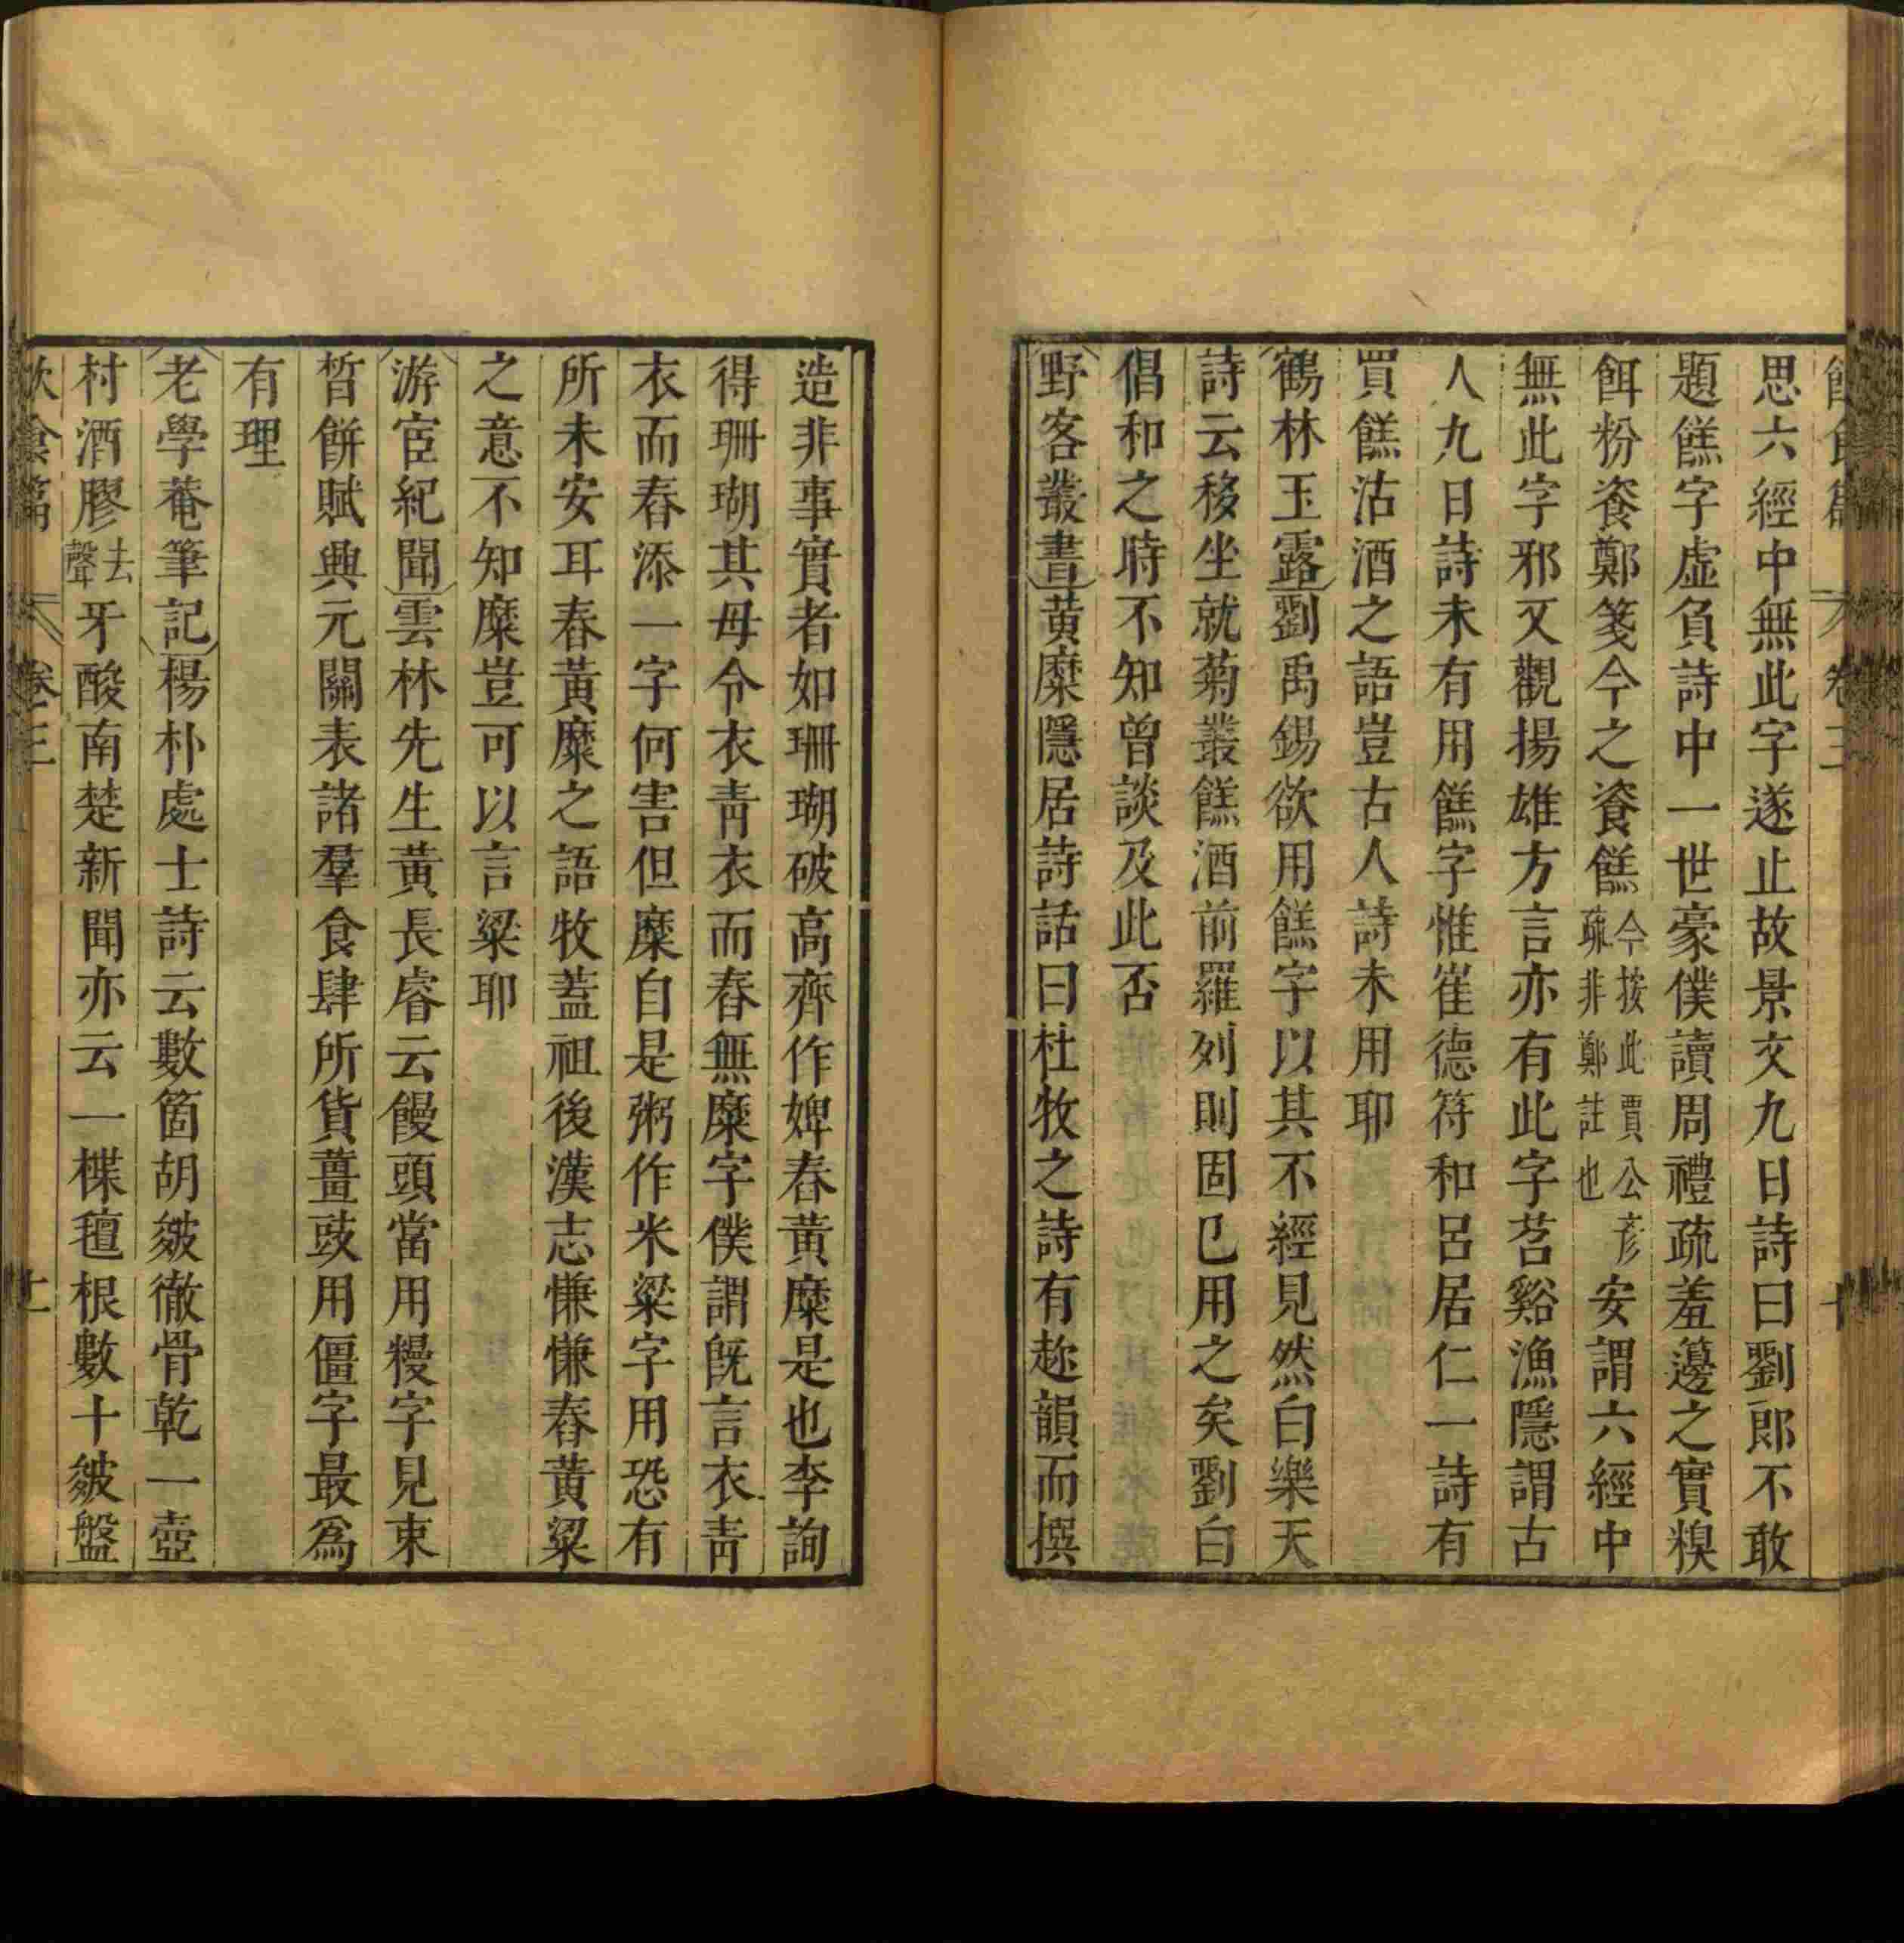 卷三
思六經中無此字遂止故景文九日詩曰劉郎不敢
題餻字虛負詩中一世豪僕讀周禮疏羞籩之實糗
餌粉餈鄭箋今之餈餻今按此賈公彥疏非鄭註也安謂六經中
無此字邪又觀揚雄方言亦有此字苕谿漁隱謂古
人九日詩未有用餻字惟崔德符和呂居仁一詩有
買餻沽酒之語豈古人詩未用耶
鶴林玉露劉禹錫欲用餻字以其不經見然白樂天
詩云移坐就菊叢餻酒前羅列則固已用之矣劉白
倡和之時不知曾談及此否
野客叢書黃糜隱居詩話曰杜牧之詩有趂韻而撰
造非事實者如珊瑚破高齊作婢舂黃糜是也李詢
得珊瑚其母令衣青衣而舂無糜字僕謂旣言衣青
衣而舂添一字何害但糜自是粥作米粱字用恐有
所未安耳舂黃糜之語牧蓋祖後漢志慊慊舂黃粱
之意不知糜豈可以言粱耶
游宦紀聞雲林先生黃長睿云饅頭當用䊡字見束
晳餅賦興元關表諸羣食肆所貨薑豉用僵字最爲
有理
老學菴筆記楊朴處士詩云數箇胡皴徹骨乾一壺
村酒膠去聲牙酸南楚新聞亦云一楪氊根數十皴盤
飲食篇 卷三